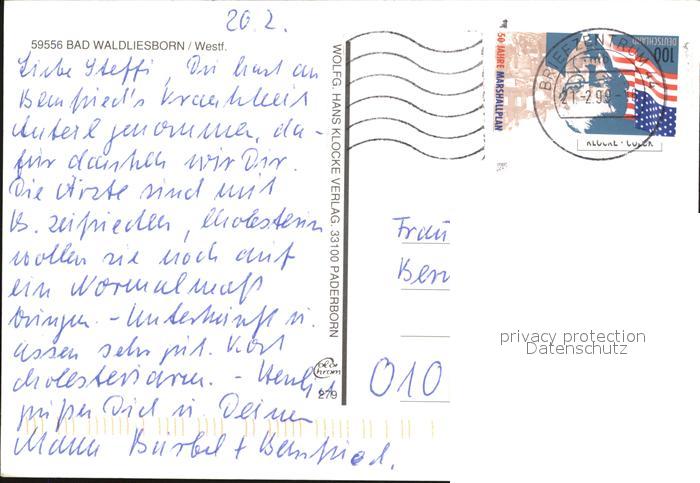 20.2.
59556 BAD WALDLIESBORN / Westf.
Liebe Steffi, Du hast an
Bernfried's Krankheit
Anteil genommen, da-
für danken wir Dir.
Die Ärzte sind mit
B. zufrieden, Cholesterin
wollen sie noch auf
ein Normalmaß
bringen. - Unterkunft u.
Essen sehr gut. Kost
cholesterinarm. - Herzlich
grüßen Dich u. Deinen
Mann Bärbel + Bernfried.
WOLFG. HANS KLOCKE VERLAG. 33100 PADERBORN
279
50 JAHRE MARSHALLPLAN
DEUTSCHLAND
100
BRIEFZENTRUM
21.-2.98
Frau
010
privacy protection
Datenschutz